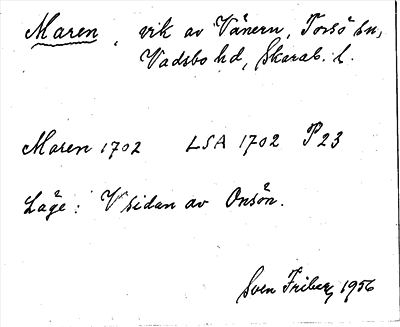 Maren, vik av Vänern, Torsö sn,
Vadsbo hd, Skarab. l.
Maren 1702 LSA 1702 P23
Läge: V sidan av Onsön.
Sven Friberg 1956